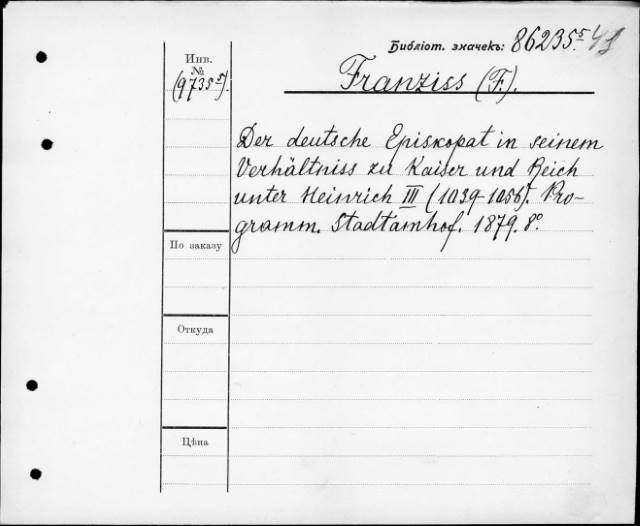 Библіот. значекъ: 86235 5
Инв.
№
(9735 5).
Franziss (F.).
Der deutsche Episkopat in seinem
Verhältniss zu Kaiser und Reich
unter Heinrich III (1039-1056). Pro-
gramm. Stadtamhof. 1879. 8º.
По заказу
Откуда
Цѣна